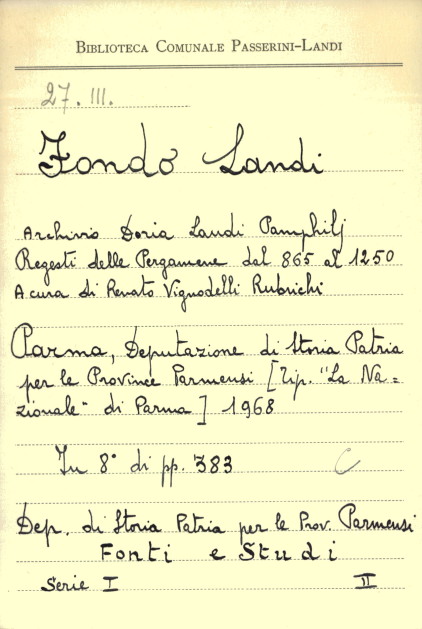 BIBLIOTECA COMUNALE PASSERINI-LANDI
27. III.
Fondo Landi
Archivio Doria Landi Pamphilj
Regesti delle Pergamene dal 865 al 1250
A cura di Renato Vignodelli Rubrichi
Parma, Deputazione di Storia Patria
per le Province Parmensi [Tip. "La Na=
zionale" di Parma] 1968
In 8° di pp. 383 C
Dep. di Storia Patria per le Prov. Parmensi
Fonti e Studi
Serie I II